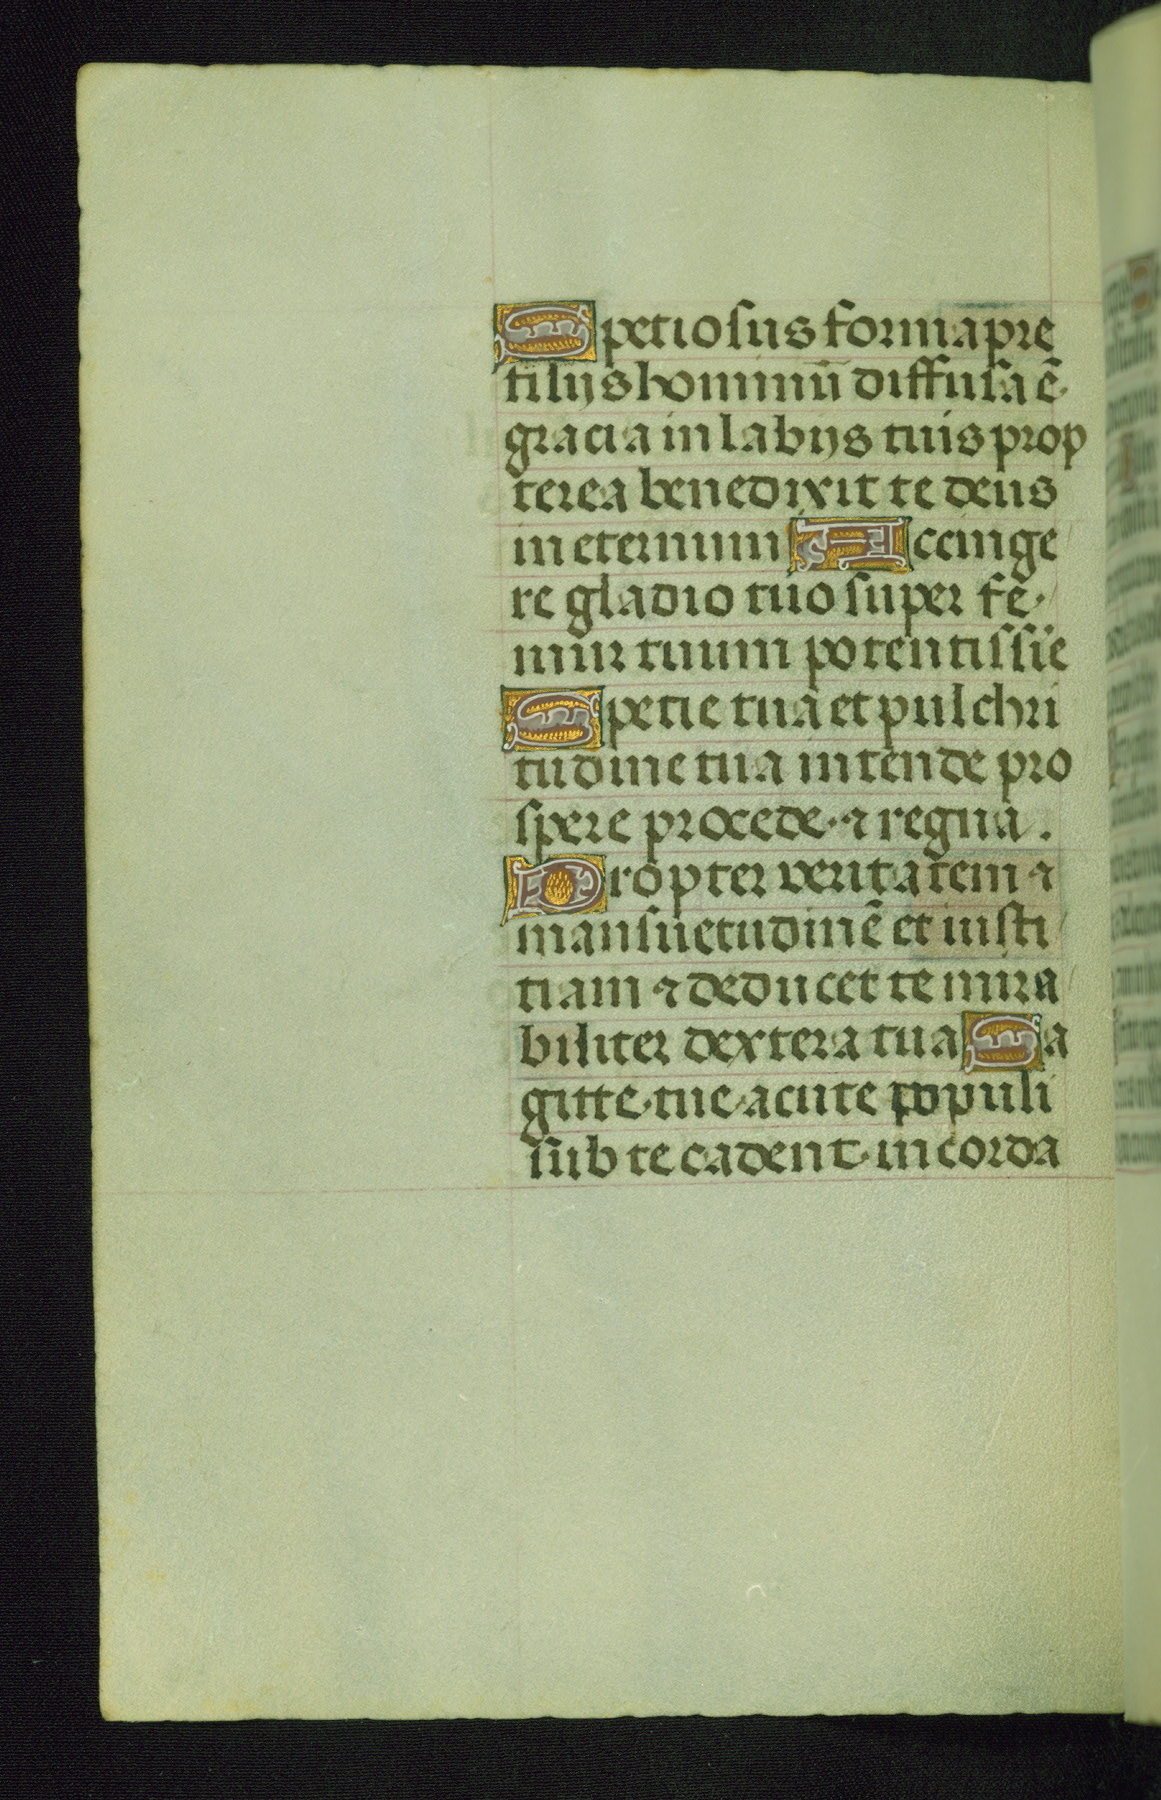 Spetiosus forma pre
filijs hominū diffusa ē
gracia in labijs tuis prop
terea benedixit te deus
in eternum Accinge
re gladio tuo super fe᷒
mur tuum potentissīe
Spetie tua et pulchri
tudine tua intende pro
spere procede · ⁊ regna .
Propter veritatem ⁊
mansuetudinē et iusti
tiam ⁊ deducet te mira
biliter dextera tua Sa
gitte · tue · acute populi
sub te cadent · in corda